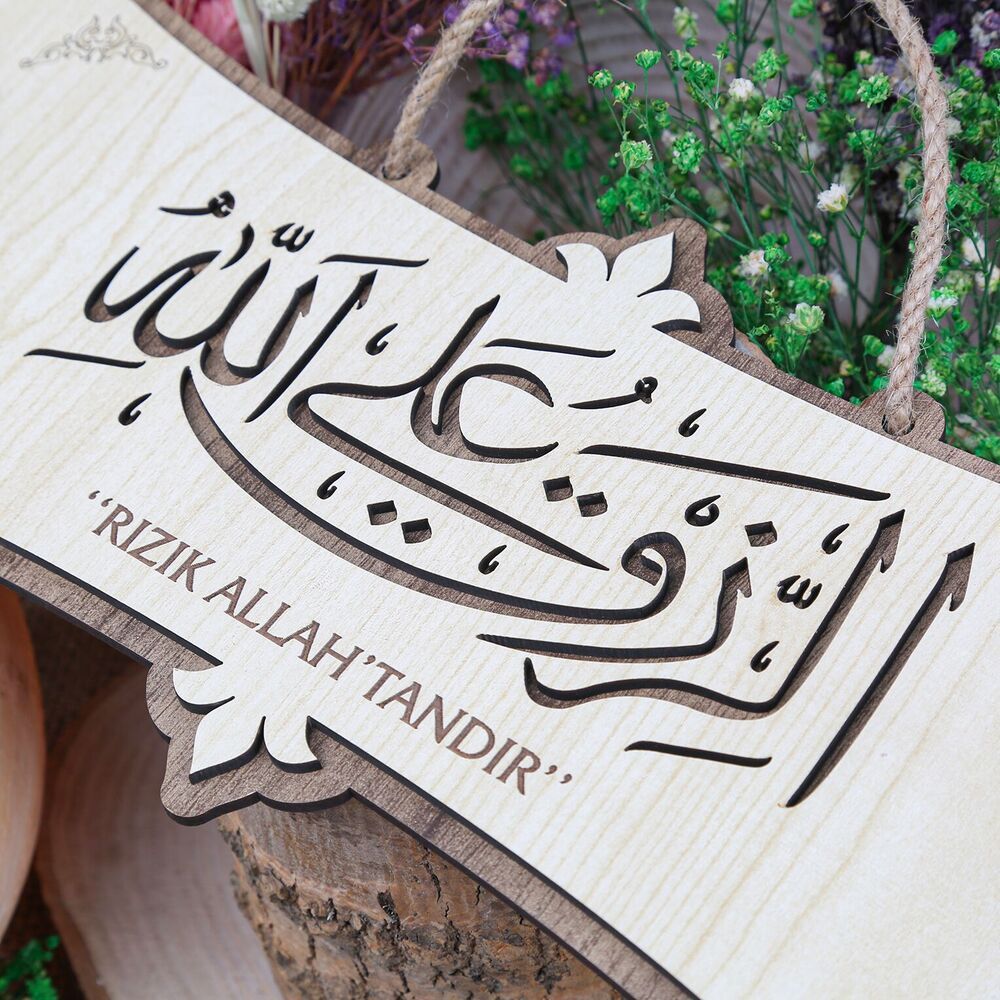 الرِّزْقُ عَلَى اللّٰهِ
“RIZIK ALLAH’TANDIR”